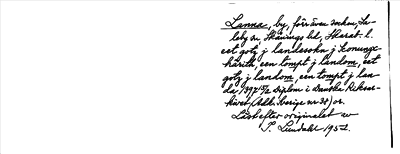 Lanna, by, förr även socken, Sa-
leby sn, Skånings hd, Skarab. l.
eet gotz j landesokn j Konunge-
häritt, een tompt j landom, eet
gotz j landom, een tompt j lan-
da 1397 15/2 Diplom i Danska Riksar-
kivet (Adl. Sverige nr 38) or.
Läst efter originalet av
J. Lundahl 1952.